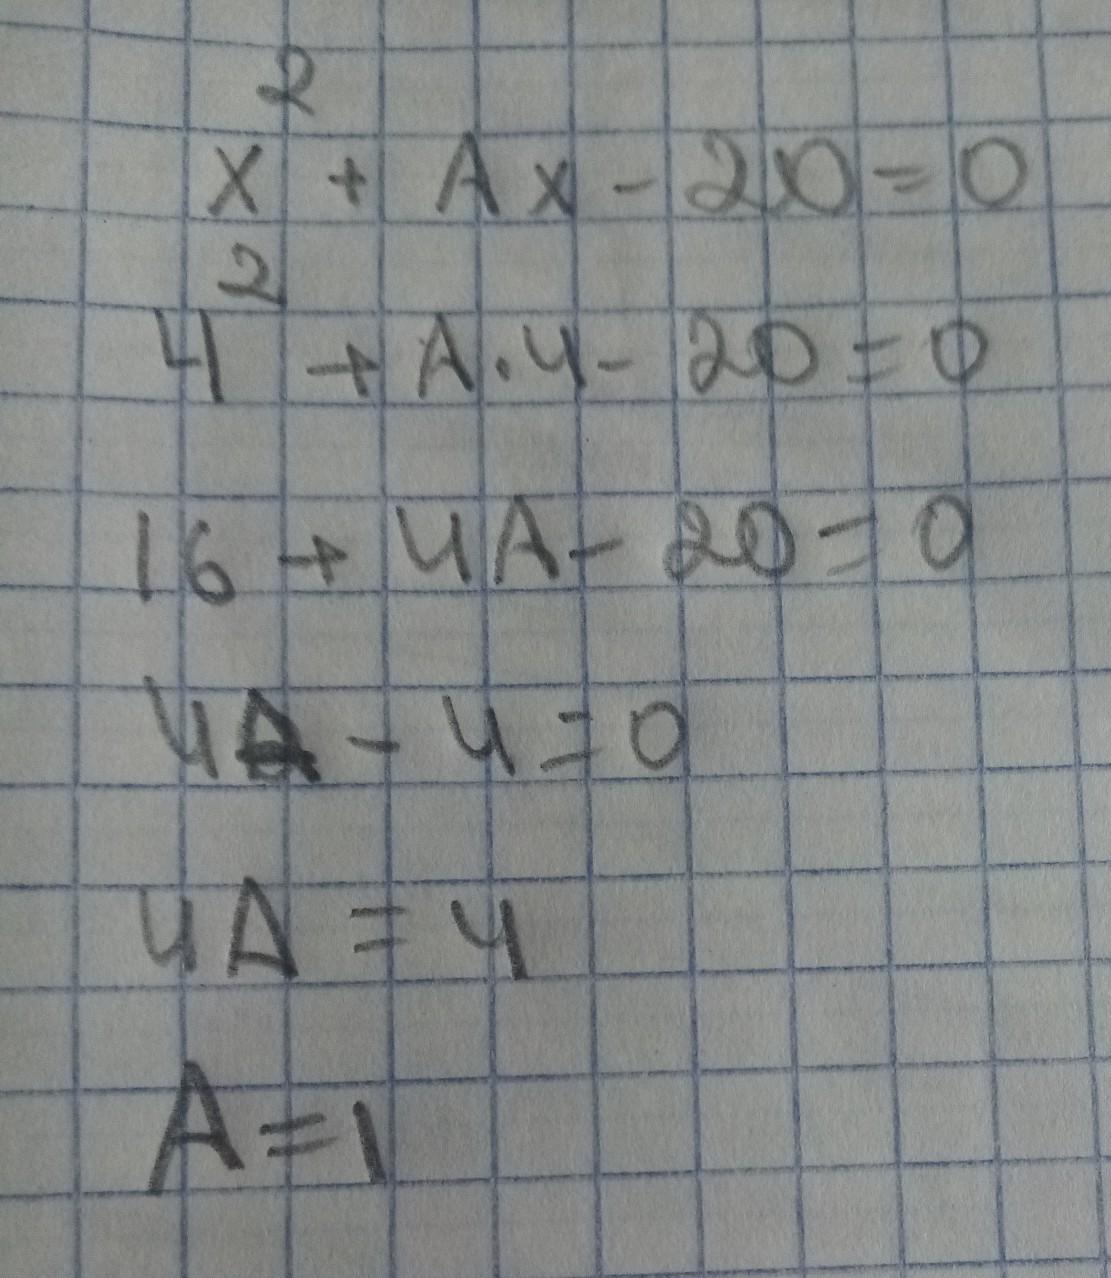 x² + Ax - 20 = 0
4² + A·4 - 20 = 0
16 + 4A - 20 = 0
4A - 4 = 0
4A = 4
A = 1